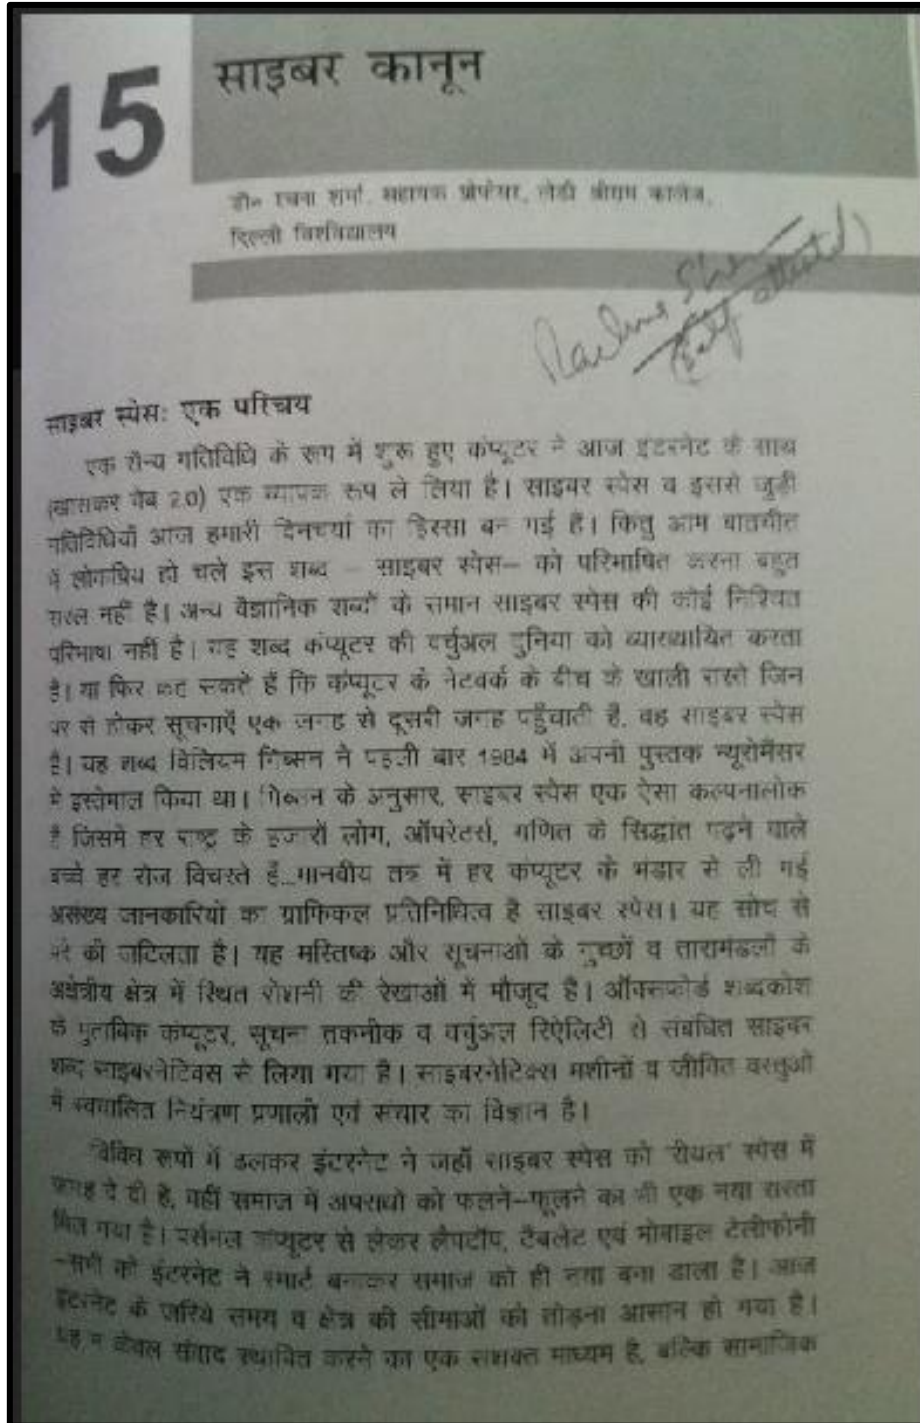 15
साइबर कानून
डॉ॰ रचना शर्मा, सहायक प्रोफेसर, लेडी श्रीराम कालेज,
दिल्ली विश्वविद्यालय
(Self attested)
साइबर स्पेस: एक परिचय
एक सैन्य गतिविधि के रूप में शुरू हुए कंप्यूटर ने आज इंटरनेट के साथ
(खासकर वेब 2.0) एक व्यापक रूप ले लिया है। साइबर स्पेस व इससे जुड़ी
गतिविधियाँ आज हमारी दिनचर्या का हिस्सा बन गई हैं। किंतु आम बातचीत
में लोकप्रिय हो चले इस शब्द – साइबर स्पेस– को परिभाषित करना बहुत
सरल नहीं है। अन्य वैज्ञानिक शब्दों के समान साइबर स्पेस की कोई निश्चित
परिभाषा नहीं है। यह शब्द कंप्यूटर की वर्चुअल दुनिया को व्याख्यायित करता
है। या फिर कह सकते हैं कि कंप्यूटर के नेटवर्क के बीच के खाली रास्ते जिन
पर से होकर सूचनाएँ एक जगह से दूसरी जगह पहुँचाती है, वह साइबर स्पेस
है। यह शब्द विलियम गिब्सन ने पहली बार 1984 में अपनी पुस्तक न्यूरोमैंसर
में इस्तेमाल किया था। गिब्सन के अनुसार, साइबर स्पेस एक ऐसा कल्पनालोक
है जिसमें हर राष्ट्र के हजारों लोग, ऑपरेटर्स, गणित के सिद्धांत पढ़ने वाले
बच्चे हर रोज विचरते हैं...मानवीय तंत्र में हर कंप्यूटर के भंडार से ली गई
असंख्य जानकारियों का ग्राफिकल प्रतिनिधित्व है साइबर स्पेस। यह सोच से
परे की जटिलता है। यह मस्तिष्क और सूचनाओं के गुच्छों व तारामंडलों के
अक्षेत्रीय क्षेत्र में स्थित रोशनी की रेखाओं में मौजूद है। ऑक्सफोर्ड शब्दकोश
के मुताबिक कंप्यूटर, सूचना तकनीक व वर्चुअल रिऐलिटी से संबंधित साइबर
शब्द साइबरनेटिक्स से लिया गया है। साइबरनेटिक्स मशीनों व जीवित वस्तुओं
में स्वचालित नियंत्रण प्रणाली एवं संचार का विज्ञान है।
विविध रूपों में ढलकर इंटरनेट ने जहाँ साइबर स्पेस को 'रीयल' स्पेस में
जगह दे दी है, वहीं समाज में अपराधों को फलने–फूलने का भी एक नया रास्ता
मिल गया है। पर्सनल कंप्यूटर से लेकर लैपटॉप, टैबलेट एवं मोबाइल टेलीफोनी
–सभी को इंटरनेट ने स्मार्ट बनाकर समाज को ही नया बना डाला है। आज
इंटरनेट के जरिये समय व क्षेत्र की सीमाओं को तोड़ना आसान हो गया है।
यह न केवल संवाद स्थापित करने का एक सशक्त माध्यम है, बल्कि सामाजिक